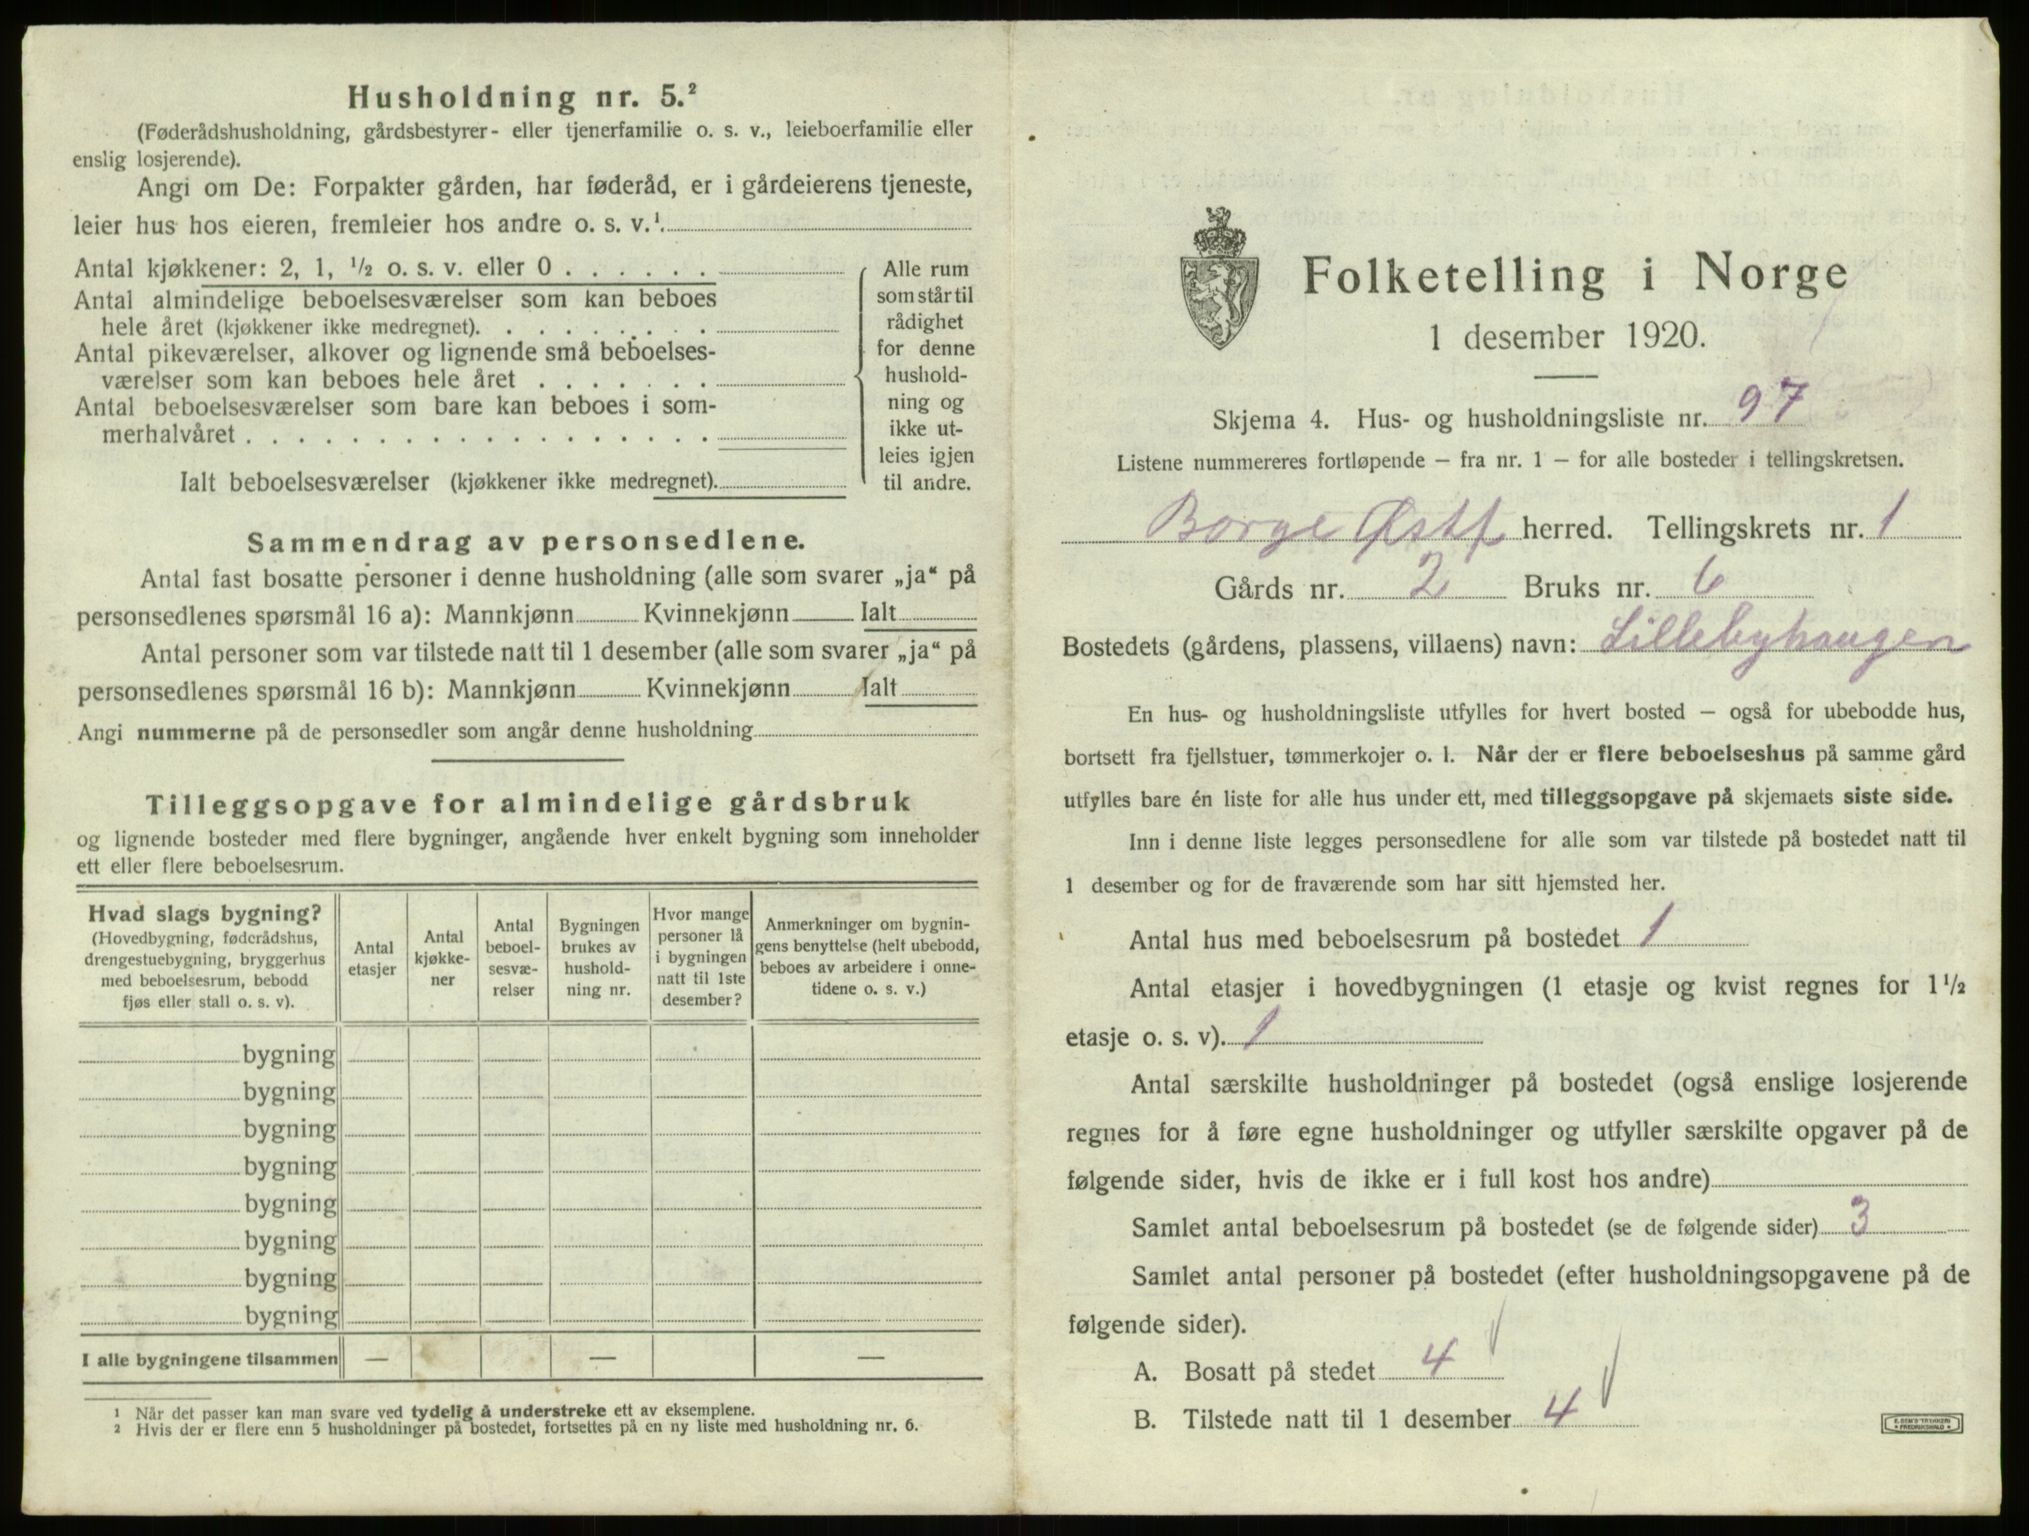 Husholdning nr. 5.²
(Føderådshusholdning, gårdsbestyrer- eller tjenerfamilie o. s. v., leieboerfamilie eller
enslig losjerende).
Angi om De: Forpakter gården, har føderåd, er i gårdeierens tjeneste,
leier hus hos eieren, fremleier hos andre o. s. v.¹.
Antal kjøkkener: 2, 1, ½ o. s. v. eller 0 . . . . . .
Antal almindelige beboelsesværelser som kan beboes
hele året (kjøkkener ikke medregnet). . . . . . . . .
Antal pikeværelser, alkover og lignende små beboelses-
værelser som kan beboes hele året . . . . . . .
Antal beboelsesværelser som bare kan beboes i som-
merhalvåret . . . . . . . . . . . . . . . . . .
Ialt beboelsesværelser (kjøkkener ikke medregnet).
Alle rum
som står til
rådighet
for denne
hushold-
ning og
ikke ut-
leies igjen
til andre.
Sammendrag av personsedlene.
Antal fast bosatte personer i denne husholdning (alle som svarer „ja“ på
personsedlenes spørsmål 16 a): Mannkjønn Kvinnekjønn Ialt
Antal personer som var tilstede natt til 1 desember (alle som svarer „ja“ på
personsedlenes spørsmål 16 b): Mannkjønn Kvinnekjønn Ialt
Angi nummerne på de personsedler som angår denne husholdning
Tilleggsopgave for almindelige gårdsbruk
og lignende bosteder med flere bygninger, angående hver enkelt bygning som inneholder
ett eller flere beboelsesrum.
Hvad slags bygning?
(Hovedbygning, føderådshus,
drengestuebygning, bryggerhus
med beboelsesrum, bebodd
fjøs eller stall o. s. v).
Antal
etasjer
Antal
kjøkke-
ner
Antal
beboel-
sesvæ-
relser
Bygningen
brukes av
hushold-
ning nr.
Hvor mange
personer lå
i bygningen
natt til 1ste
desember?
Anmerkninger om bygnin-
gens benyttelse (helt ubebodd,
beboes av arbeidere i onne-
tidene o. s. v.)
bygning
bygning
bygning
bygning
bygning
bygning
bygning
bygning
I alle bygningene tilsammen — — —
¹ Når det passer kan man svare ved tydelig å understreke ett av eksemplene.
² Hvis der er flere enn 5 husholdninger på bostedet, fortsettes på en ny liste med husholdning nr. 6.
Folketelling i Norge
1 desember 1920.
Skjema 4. Hus- og husholdningsliste nr. 97
Listene nummereres fortløpende – fra nr. 1 – for alle bosteder i tellingskretsen.
Borge Østf herred. Tellingskrets nr. 1
Gårds nr. 2 Bruks nr. 6
Bostedets (gårdens, plassens, villaens) navn: Lillebyhaugen
En hus- og husholdningsliste utfylles for hvert bosted – også for ubebodde hus,
bortsett fra fjellstuer, tømmerkojer o. l. Når der er flere beboelseshus på samme gård
utfylles bare én liste for alle hus under ett, med tilleggsopgave på skjemaets siste side.
Inn i denne liste legges personsedlene for alle som var tilstede på bostedet natt til
1 desember og for de fraværende som har sitt hjemsted her.
Antal hus med beboelsesrum på bostedet 1
Antal etasjer i hovedbygningen (1 etasje og kvist regnes for 1½
etasje o. s. v). 1
Antal særskilte husholdninger på bostedet (også enslige losjerende
regnes for å føre egne husholdninger og utfyller særskilte opgaver på de
følgende sider, hvis de ikke er i full kost hos andre)
Samlet antal beboelsesrum på bostedet (se de følgende sider) 3
Samlet antal personer på bostedet (efter husholdningsopgavene på de
følgende sider).
A. Bosatt på stedet 4
B. Tilstede natt til 1 desember 4